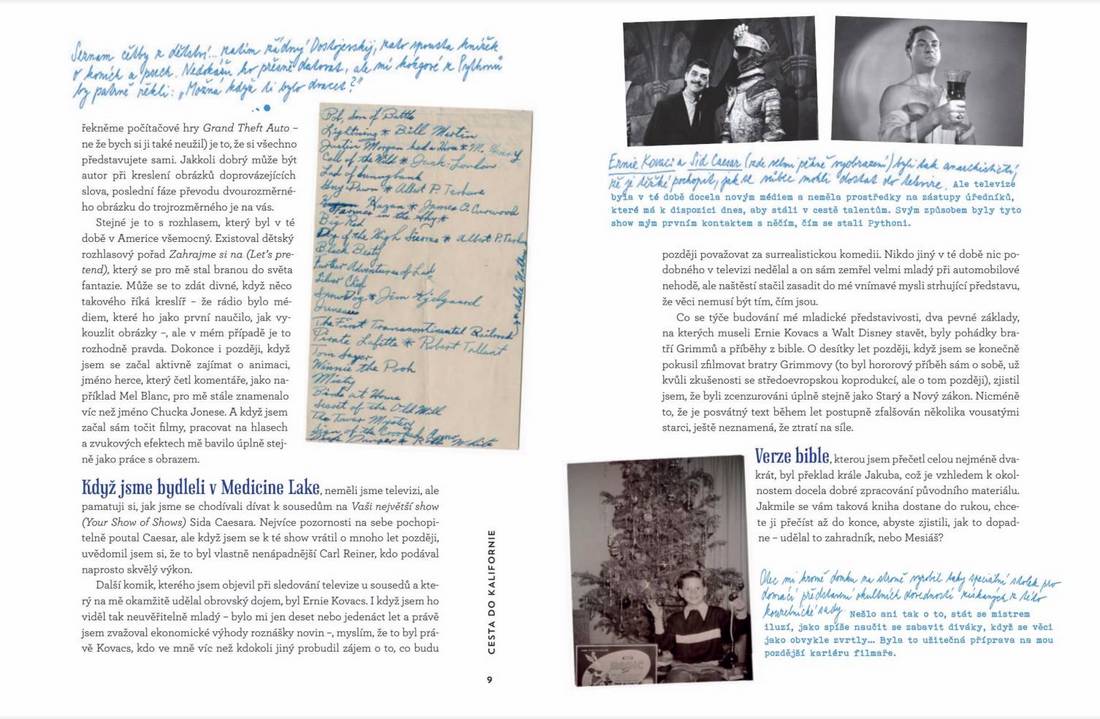 Seznam četby z dětství... zatím žádný Dostojevskij, zato spousta knížek
o koních a psech. Nedokážu ho přesně datovat, ale mí kolegové z Pythonů
by patrně řekli: „Možná když ti bylo dvacet?“
řekněme počítačové hry Grand Theft Auto –
ne že bych si ji také neužil) je to, že si všechno
představujete sami. Jakkoli dobrý může být
autor při kreslení obrázků doprovázejících
slova, poslední fáze převodu dvourozměrné-
ho obrázku do trojrozměrného je na vás.
Stejné je to s rozhlasem, který byl v té
době v Americe všemocný. Existoval dětský
rozhlasový pořad Zahrajme si na (Let's pre-
tend), který se pro mě stal branou do světa
fantazie. Může se to zdát divné, když něco
takového říká kreslíř – že rádio bylo mé-
diem, které ho jako první naučilo, jak vy-
kouzlit obrázky –, ale v mém případě je to
rozhodně pravda. Dokonce i později, když
jsem se začal aktivně zajímat o animaci,
jméno herce, který četl komentáře, jako na-
příklad Mel Blanc, pro mě stále znamenalo
víc než jméno Chucka Jonese. A když jsem
začal sám točit filmy, pracovat na hlasech
a zvukových efektech mě bavilo úplně stej-
ně jako práce s obrazem.
Když jsme bydleli v Medicine Lake, neměli jsme televizi, ale
pamatuji si, jak jsme se chodívali dívat k sousedům na Vaši největší show
(Your Show of Shows) Sida Caesara. Nejvíce pozornosti na sebe pochopi-
telně poutal Caesar, ale když jsem se k té show vrátil o mnoho let později,
uvědomil jsem si, že to byl vlastně nenápadnější Carl Reiner, kdo podával
naprosto skvělý výkon.
Další komik, kterého jsem objevil při sledování televize u sousedů a kte-
rý na mě okamžitě udělal obrovský dojem, byl Ernie Kovacs. I když jsem ho
viděl tak neuvěřitelně mladý – bylo mi jen deset nebo jedenáct let a právě
jsem zvažoval ekonomické výhody roznášky novin –, myslím, že to byl prá-
vě Kovacs, kdo ve mně víc než kdokoli jiný probudil zájem o to, co budu
Pat, Son of Battle
Lightning * Bill Martin
Justin Morgan had a Horse * M. Henry
Call of the Wild * Jack London
Lad of Sunnybank
Gray Dawn * Albert P. Terhune
Kazan * James O. Curwood
Farmer in the Sky *
Big Red
Dog of the High Sierras * Albert P. Terhune
Black Beauty
Further Adventures of Lad
Silver Chief
Snow Dog * Jim Kjelgaard
Irenesses
The First Transcontinental Railroad
Pirate Lafitte * Robert Tallant
Tom Sawyer
Winnie the Pooh
Misty
Birds at Home
Secret of the Old Mill
The Tower Mystery
Sign of the Crooked Arrow
CESTA DO KALIFORNIE
9
Ernie Kovacs a Sid Caesar (zde velmi pěkné vyobrazení) byli tak anarchističtí,
že je těžké pochopit, jak se vůbec mohli dostat do televize. Ale televize
byla v té době docela novým médiem a neměla prostředky na zástupy úředníků,
které má k dispozici dnes, aby stáli v cestě talentům. Svým způsobem byly tyto
show mým prvním kontaktem s něčím, čím se stali Pythoni.
později považovat za surrealistickou komedii. Nikdo jiný v té době nic po-
dobného v televizi nedělal a on sám zemřel velmi mladý při automobilové
nehodě, ale naštěstí stačil zasadit do mé vnímavé mysli strhující představu,
že věci nemusí být tím, čím jsou.
Co se týče budování mé mladické představivosti, dva pevné základy,
na kterých museli Ernie Kovacs a Walt Disney stavět, byly pohádky bra-
tří Grimmů a příběhy z bible. O desítky let později, když jsem se konečně
pokusil zfilmovat bratry Grimmovy (to byl hororový příběh sám o sobě, už
kvůli zkušenosti se středoevropskou koprodukcí, ale o tom později), zjistil
jsem, že byli zcenzurováni úplně stejně jako Starý a Nový zákon. Nicméně
to, že je posvátný text během let postupně zfalšován několika vousatými
starci, ještě neznamená, že ztratí na síle.
Verze bible, kterou jsem přečetl celou nejméně dva-
krát, byl překlad krále Jakuba, což je vzhledem k okol-
nostem docela dobré zpracování původního materiálu.
Jakmile se vám taková kniha dostane do rukou, chce-
te ji přečíst až do konce, abyste zjistili, jak to dopad-
ne – udělal to zahradník, nebo Mesiáš?
Otec mi kromě domku na stromě vyrobil taky speciální stolek pro
domácí představení okultních dovedností získaných z této
kouzelnické sady. Nešlo ani tak o to, stát se mistrem
iluzí, jako spíše naučit se zabavit diváky, když se věci
jako obvykle zvrtly... Byla to užitečná příprava na mou
pozdější kariéru filmaře.